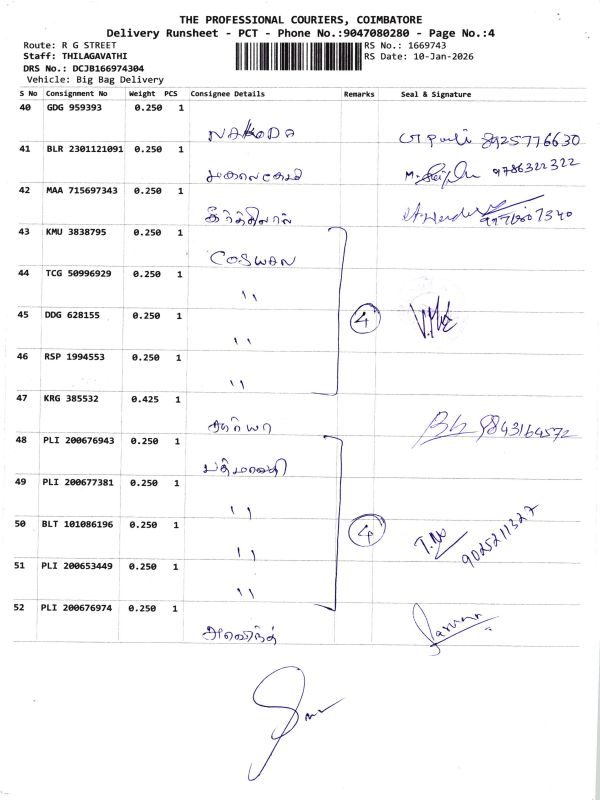 THE PROFESSIONAL COURIERS, COIMBATORE
Delivery Runsheet - PCT - Phone No.:9047080280 - Page No.:4
Route: R G STREET RS No.: 1669743
Staff: THILAGAVATHI RS Date: 10-Jan-2026
DRS No.: DCJB166974304
Vehicle: Big Bag Delivery
S No Consignment No Weight PCS Consignee Details Remarks Seal & Signature
40 GDG 959393 0.250 1
NAKODA 8925776630
41 BLR 2301121091 0.250 1
9786322322
42 MAA 715697343 0.250 1
43 KMU 3838795 0.250 1
COSWAN
44 TCG 50996929 0.250 1
" 4
45 DDG 628155 0.250 1
"
46 RSP 1994553 0.250 1
"
47 KRG 385532 0.425 1
9843164572
48 PLI 200676943 0.250 1
49 PLI 200677381 0.250 1
"
50 BLT 101086196 0.250 1
" 4 9025211327
51 PLI 200653449 0.250 1
"
52 PLI 200676974 0.250 1